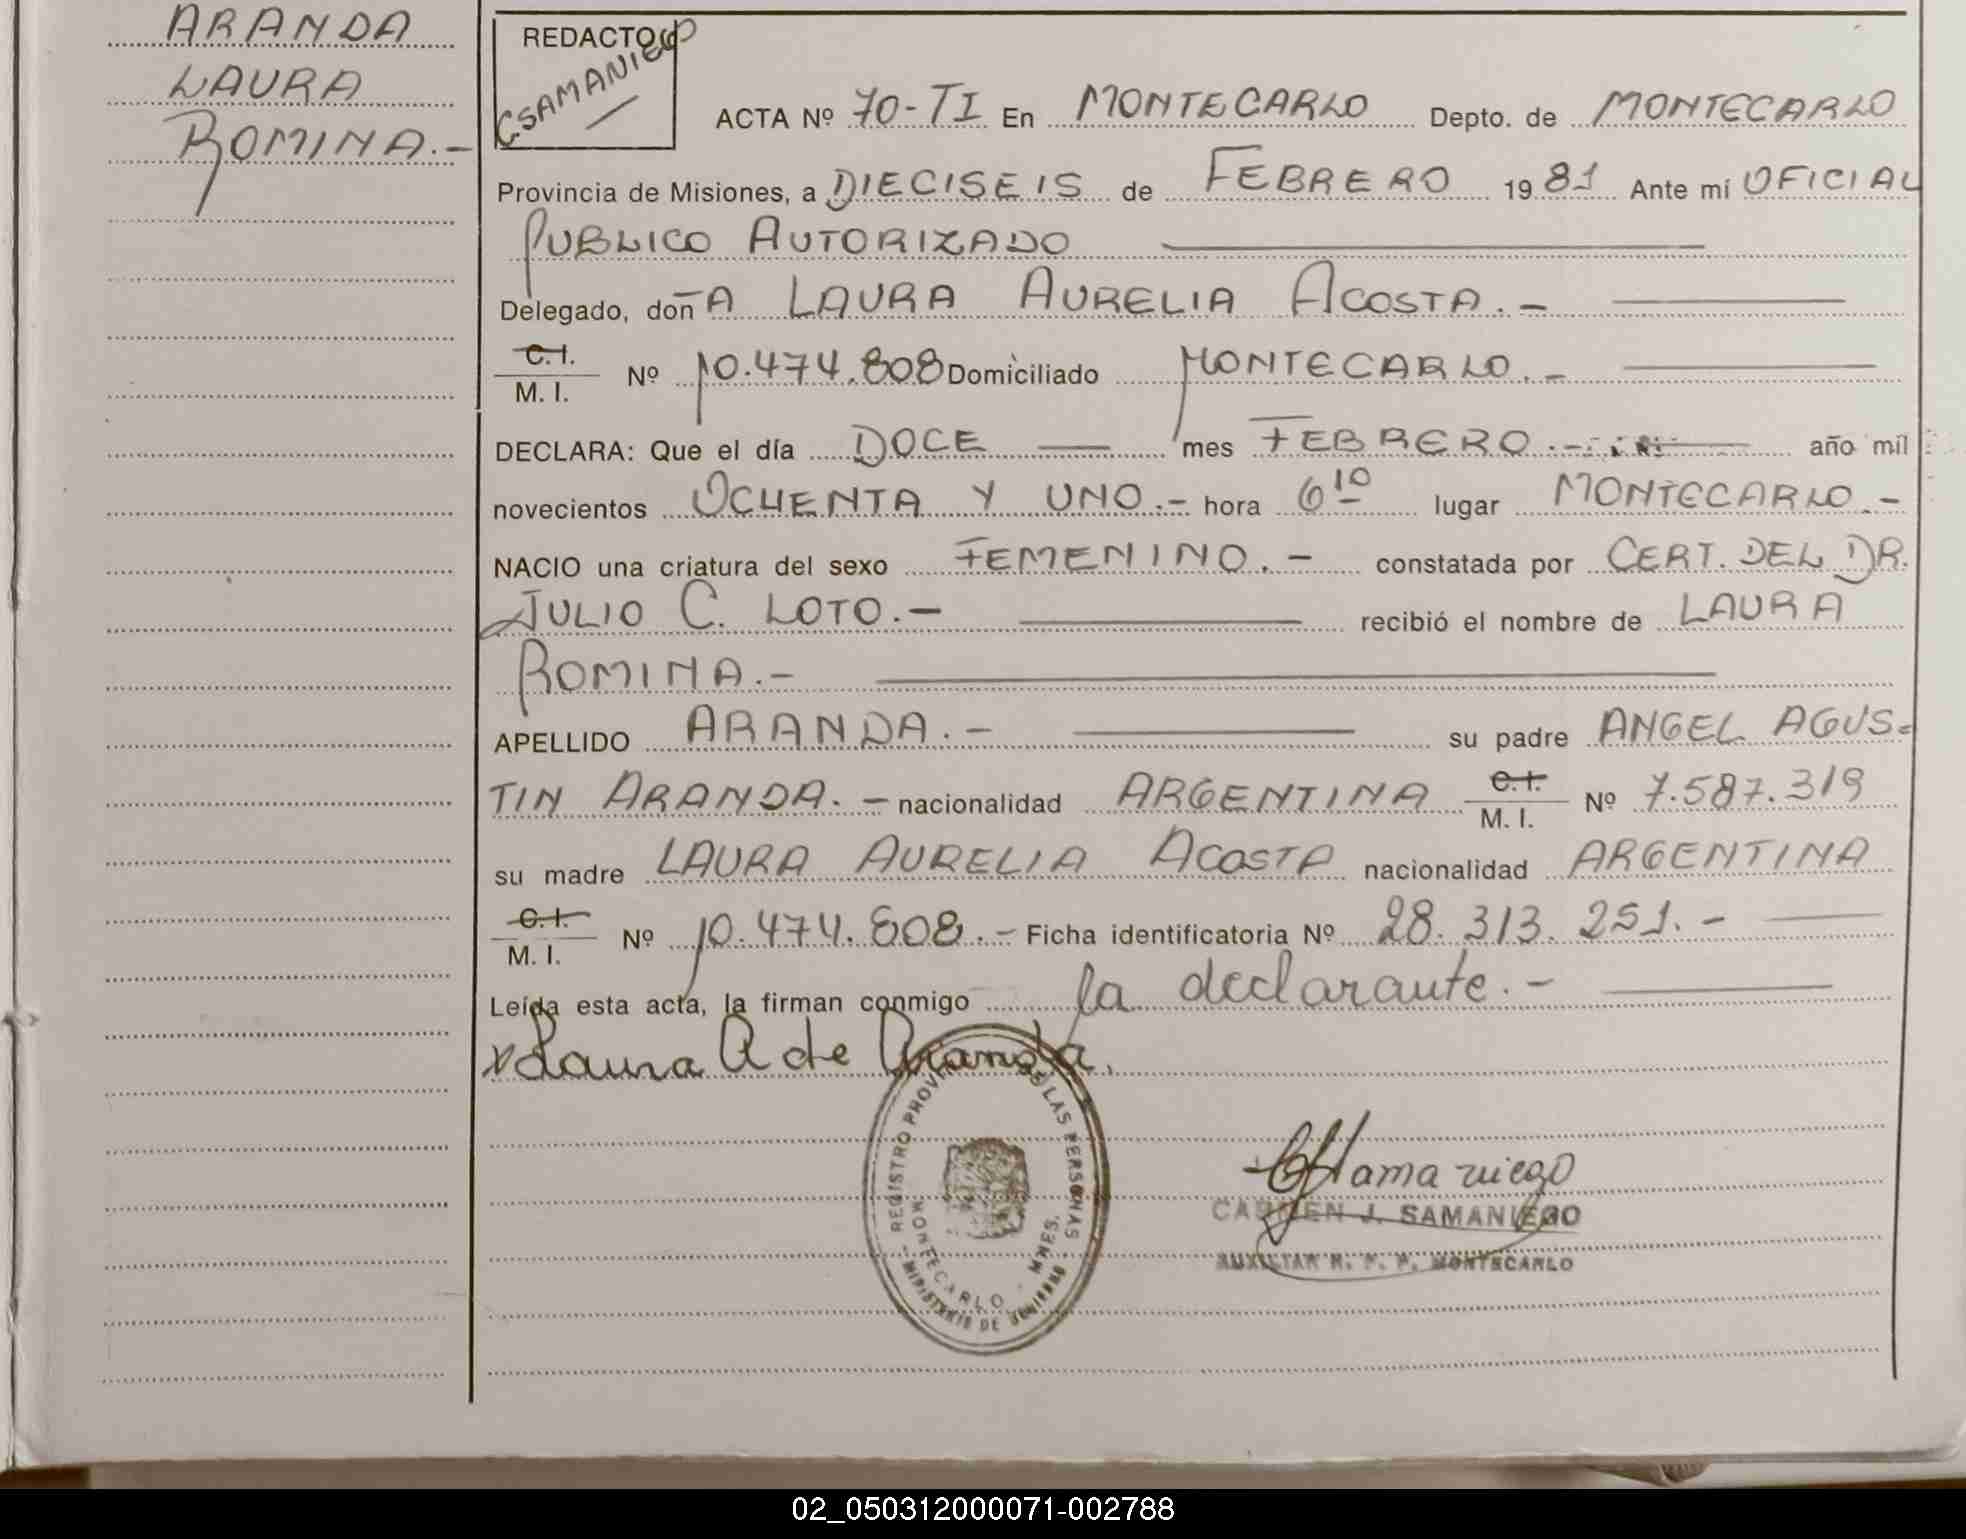 ARANDA
LAURA
ROMINA.-
REDACTO
CSAMANIEGO
ACTA Nº 70-TI En MONTECARLO Depto. de MONTECARLO
Provincia de Misiones, a DIECISEIS de FEBRERO 1981 Ante mí OFICIAL
PUBLICO AUTORIZADO
Delegado, doñA LAURA AURELIA ACOSTA.-
C.I.
M. I. Nº 10.474.808 Domiciliado MONTECARLO.-
DECLARA: Que el día DOCE mes FEBRERO.- año mil
novecientos OCHENTA Y UNO.- hora 6 10 lugar MONTECARLO.-
NACIO una criatura del sexo FEMENINO.- constatada por CERT. DEL DR.
JULIO C. LOTO.- recibió el nombre de LAURA
ROMINA.-
APELLIDO ARANDA.- su padre ANGEL AGUS=
TIN ARANDA.- nacionalidad ARGENTINA C.I. M. I. Nº 7.587.319
su madre LAURA AURELIA ACOSTA nacionalidad ARGENTINA
C.I.
M. I. Nº 10.474.808.- Ficha identificatoria Nº 28.313.251.-
Leída esta acta, la firman conmigo la declarante.-
x Laura A de Aranda.
REGISTRO PROVINCIAL DE LAS PERSONAS
MONTECARLO - MNES.
- MINISTERIO DE GOBIERNO -
CSamaniego
CARMEN J. SAMANIEGO
AUXILIAR R. P. P. MONTECARLO
02_050312000071-002788